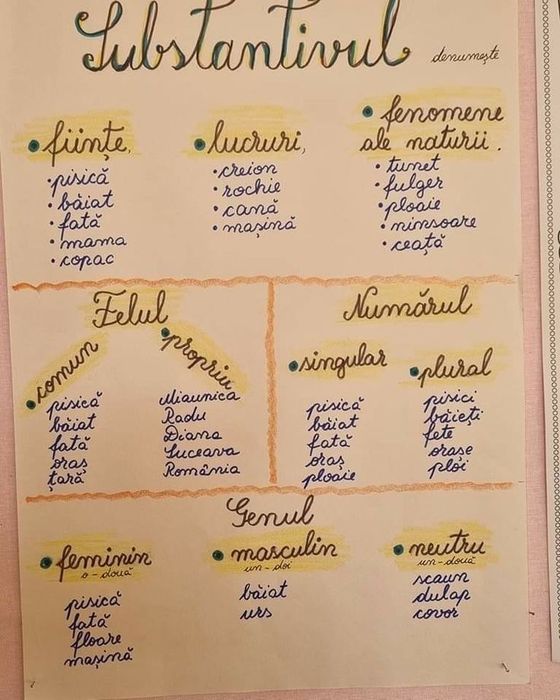 Substantivul denumește
• ființe,
• pisică
• băiat
• fată
• mama
• copac
• lucruri,
• creion
• rochie
• cană
• mașină
• fenomene
ale naturii.
• tunet
• fulger
• ploaie
• ninsoare
• ceață
Felul
• comun
pisică
băiat
fată
oraș
țară
• propriu
Miaunica
Radu
Diana
Suceava
România
Numărul
• singular
pisică
băiat
fată
oraș
ploaie
• plural
pisici
băiești
fete
orașe
ploi
Genul
• feminin
o - două
pisică
fată
floare
mașină
• masculin
un - doi
băiat
urs
• neutru
un - două
scaun
dulap
covor